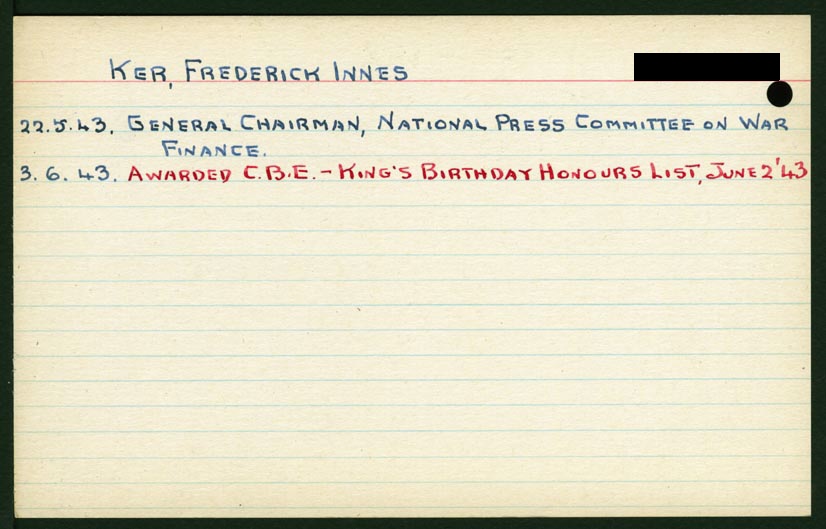 KER, FREDERICK INNES
22.5.43. GENERAL CHAIRMAN, NATIONAL PRESS COMMITTEE ON WAR
FINANCE.
3. 6. 43. AWARDED C.B.E. - KING'S BIRTHDAY HONOURS LIST, JUNE 2'43